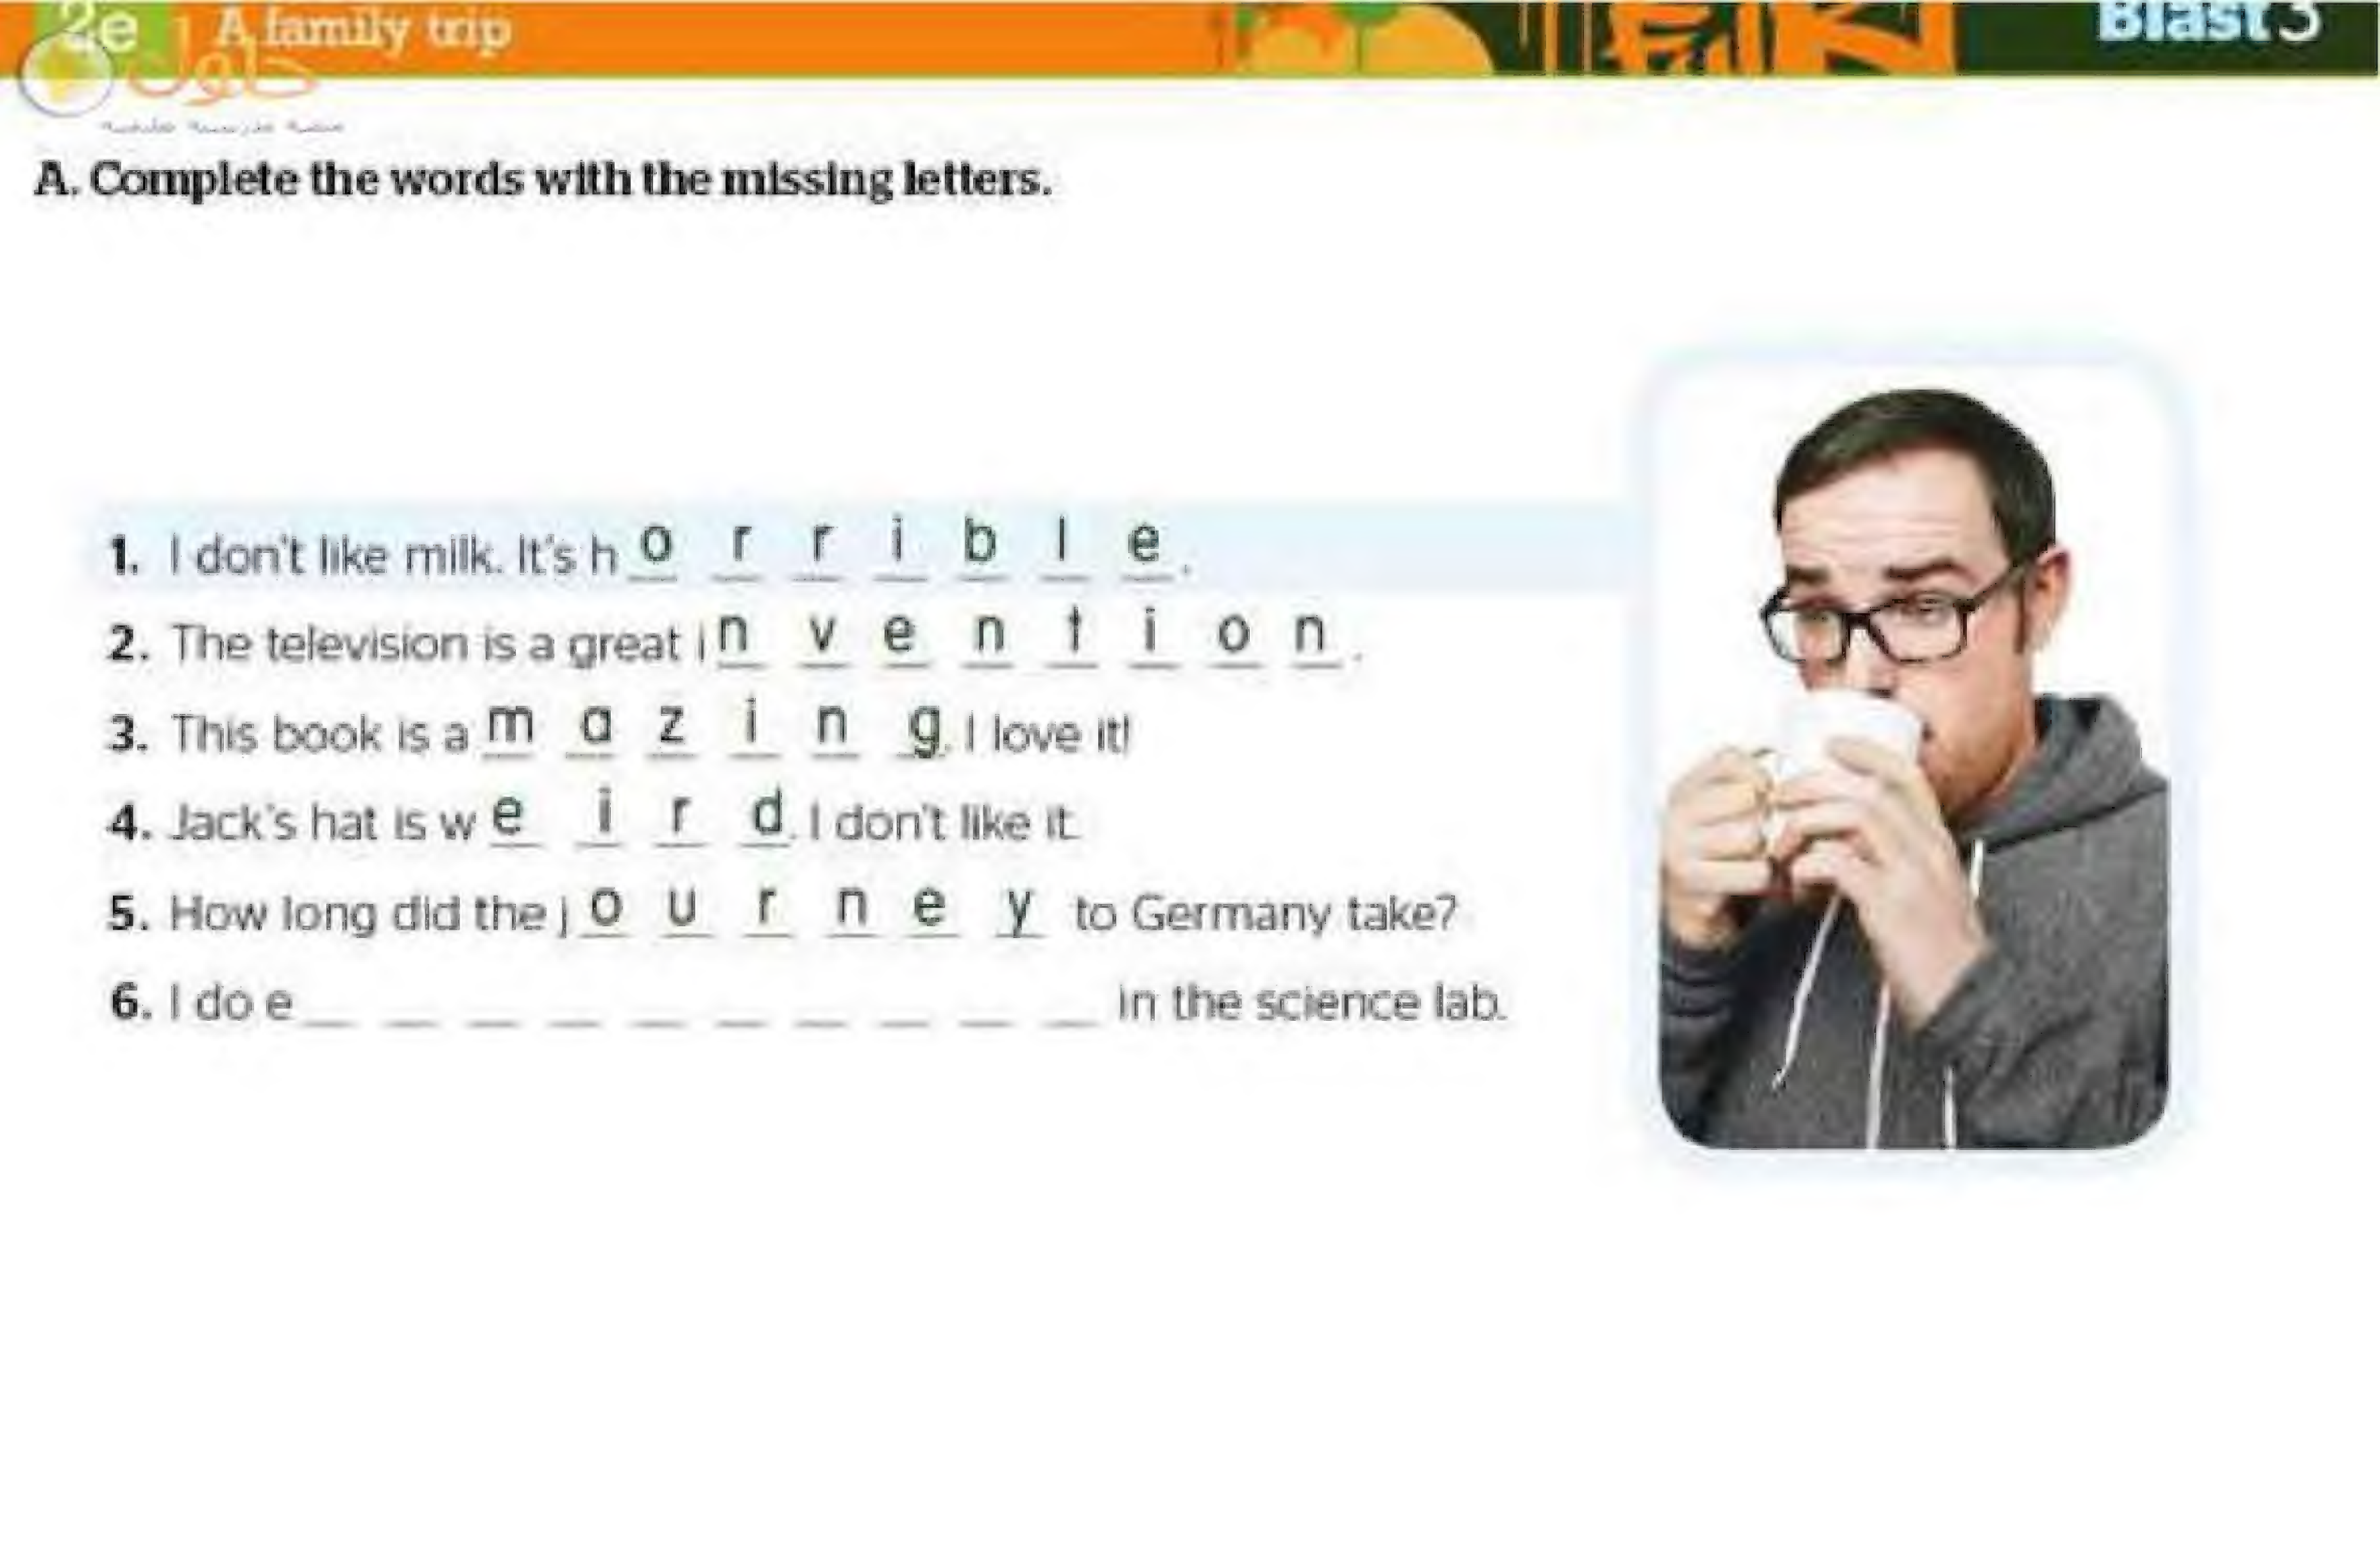 2e A family trip Blast 3
حلول
A. Complete the words with the missing letters.
1. I don't like milk. It's h o r r i b l e.
2. The television is a great i n v e n t i o n.
3. This book is a m a z i n g. I love it!
4. Jack's hat is w e i r d. I don't like it.
5. How long did the j o u r n e y to Germany take?
6. I do e _ _ _ _ _ _ _ _ _ _ in the science lab.